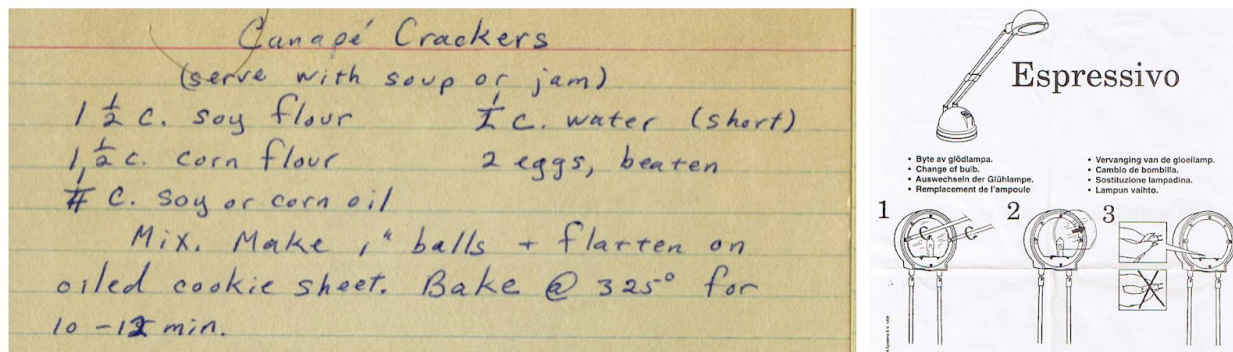 Canapé Crackers
(serve with soup or jam)
1 ½ c. soy flour
1 ½ c. corn flour
¼ c. soy or corn oil
c. water (short)
2 eggs, beaten
Mix. Make 1" balls + flatten on
oiled cookie sheet. Bake @ 325° for
10-12 min.
Espressivo
• Byte av glödlampa.
• Change of bulb.
• Auswechseln der Glühlampe.
• Remplacement de l'ampoule
• Vervanging van de gloeilamp.
• Cambio de bombilla.
• Sostituzione lampadina.
• Lampun vaihto.
1 2 3